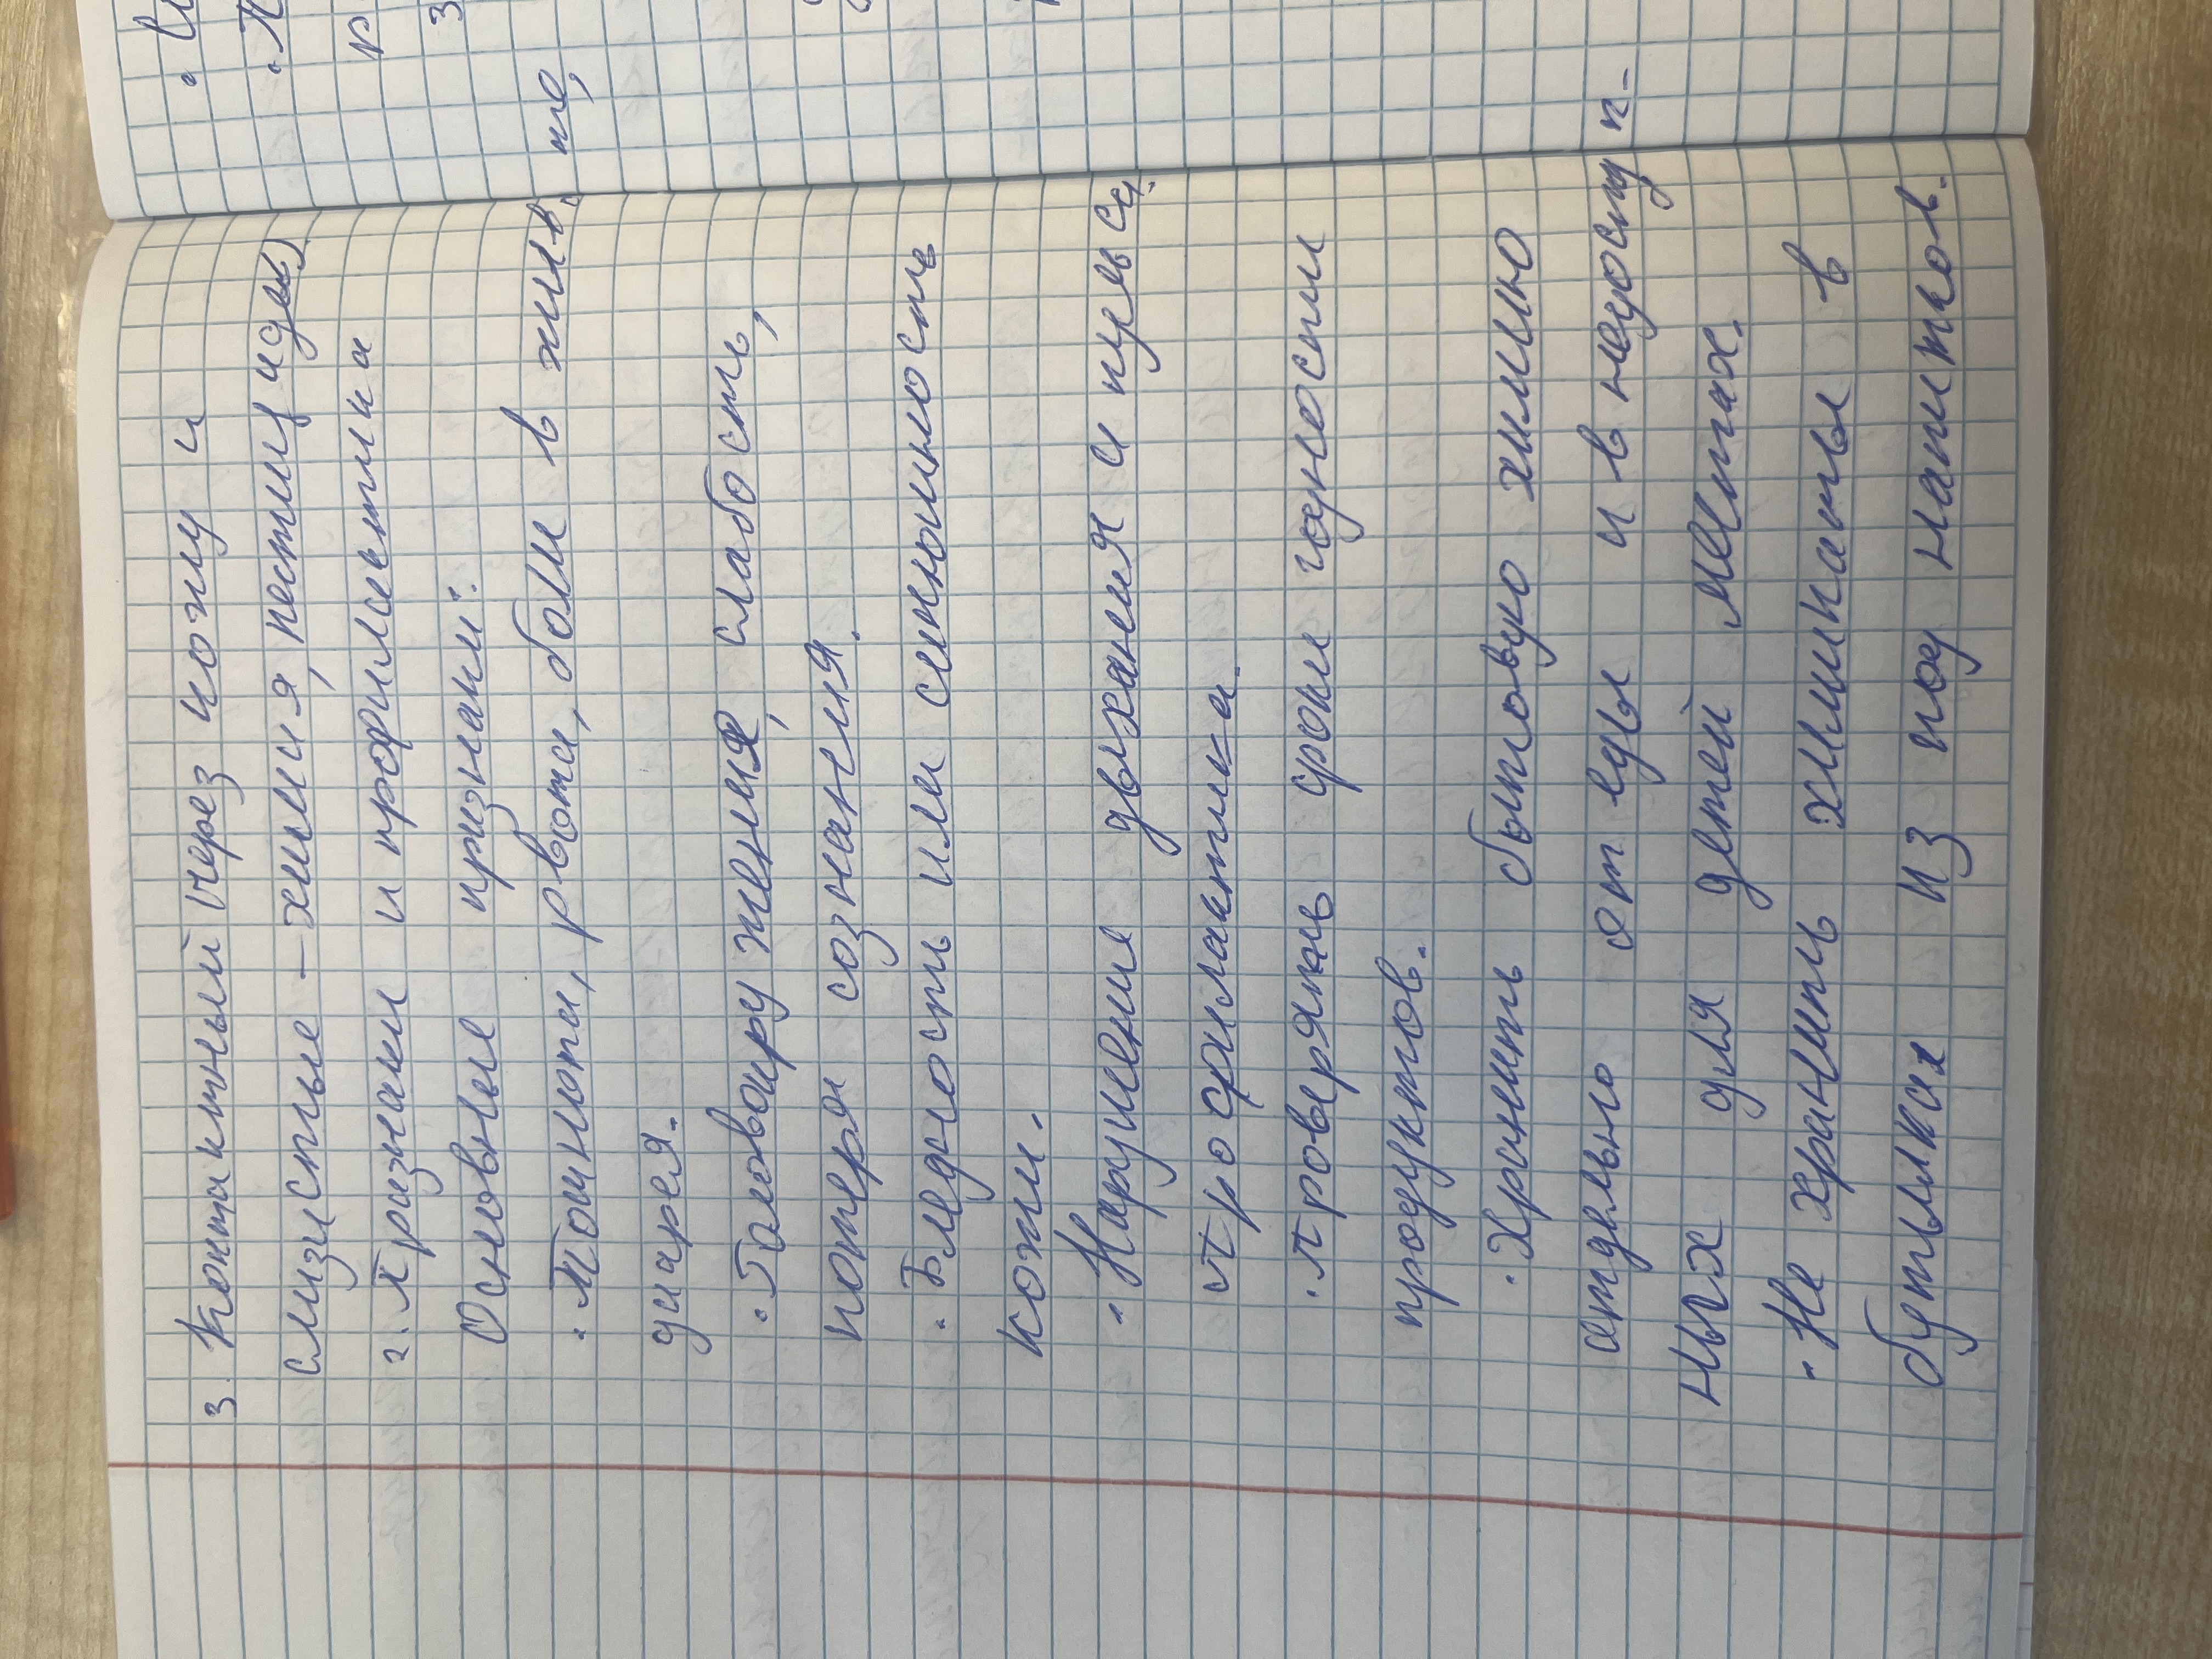 3. Контактный (через кожу и
слизистые – химия, пестициды)
2. Признаки и профилактика
Основные признаки:
· Тошнота, рвота, боли в живо те,
диарея.
· Головокружения, слабость,
потеря сознания.
· Бледность или синюшность
кожи.
· Нарушение дыхания и пульса.
Профилактика.
· Проверять сроки годности
продуктов.
· Хранить бытовую химию
отдельно от еды и в недоступ-
ных для детей местах.
· Не хранить химикаты в
бутылках из под напитков.